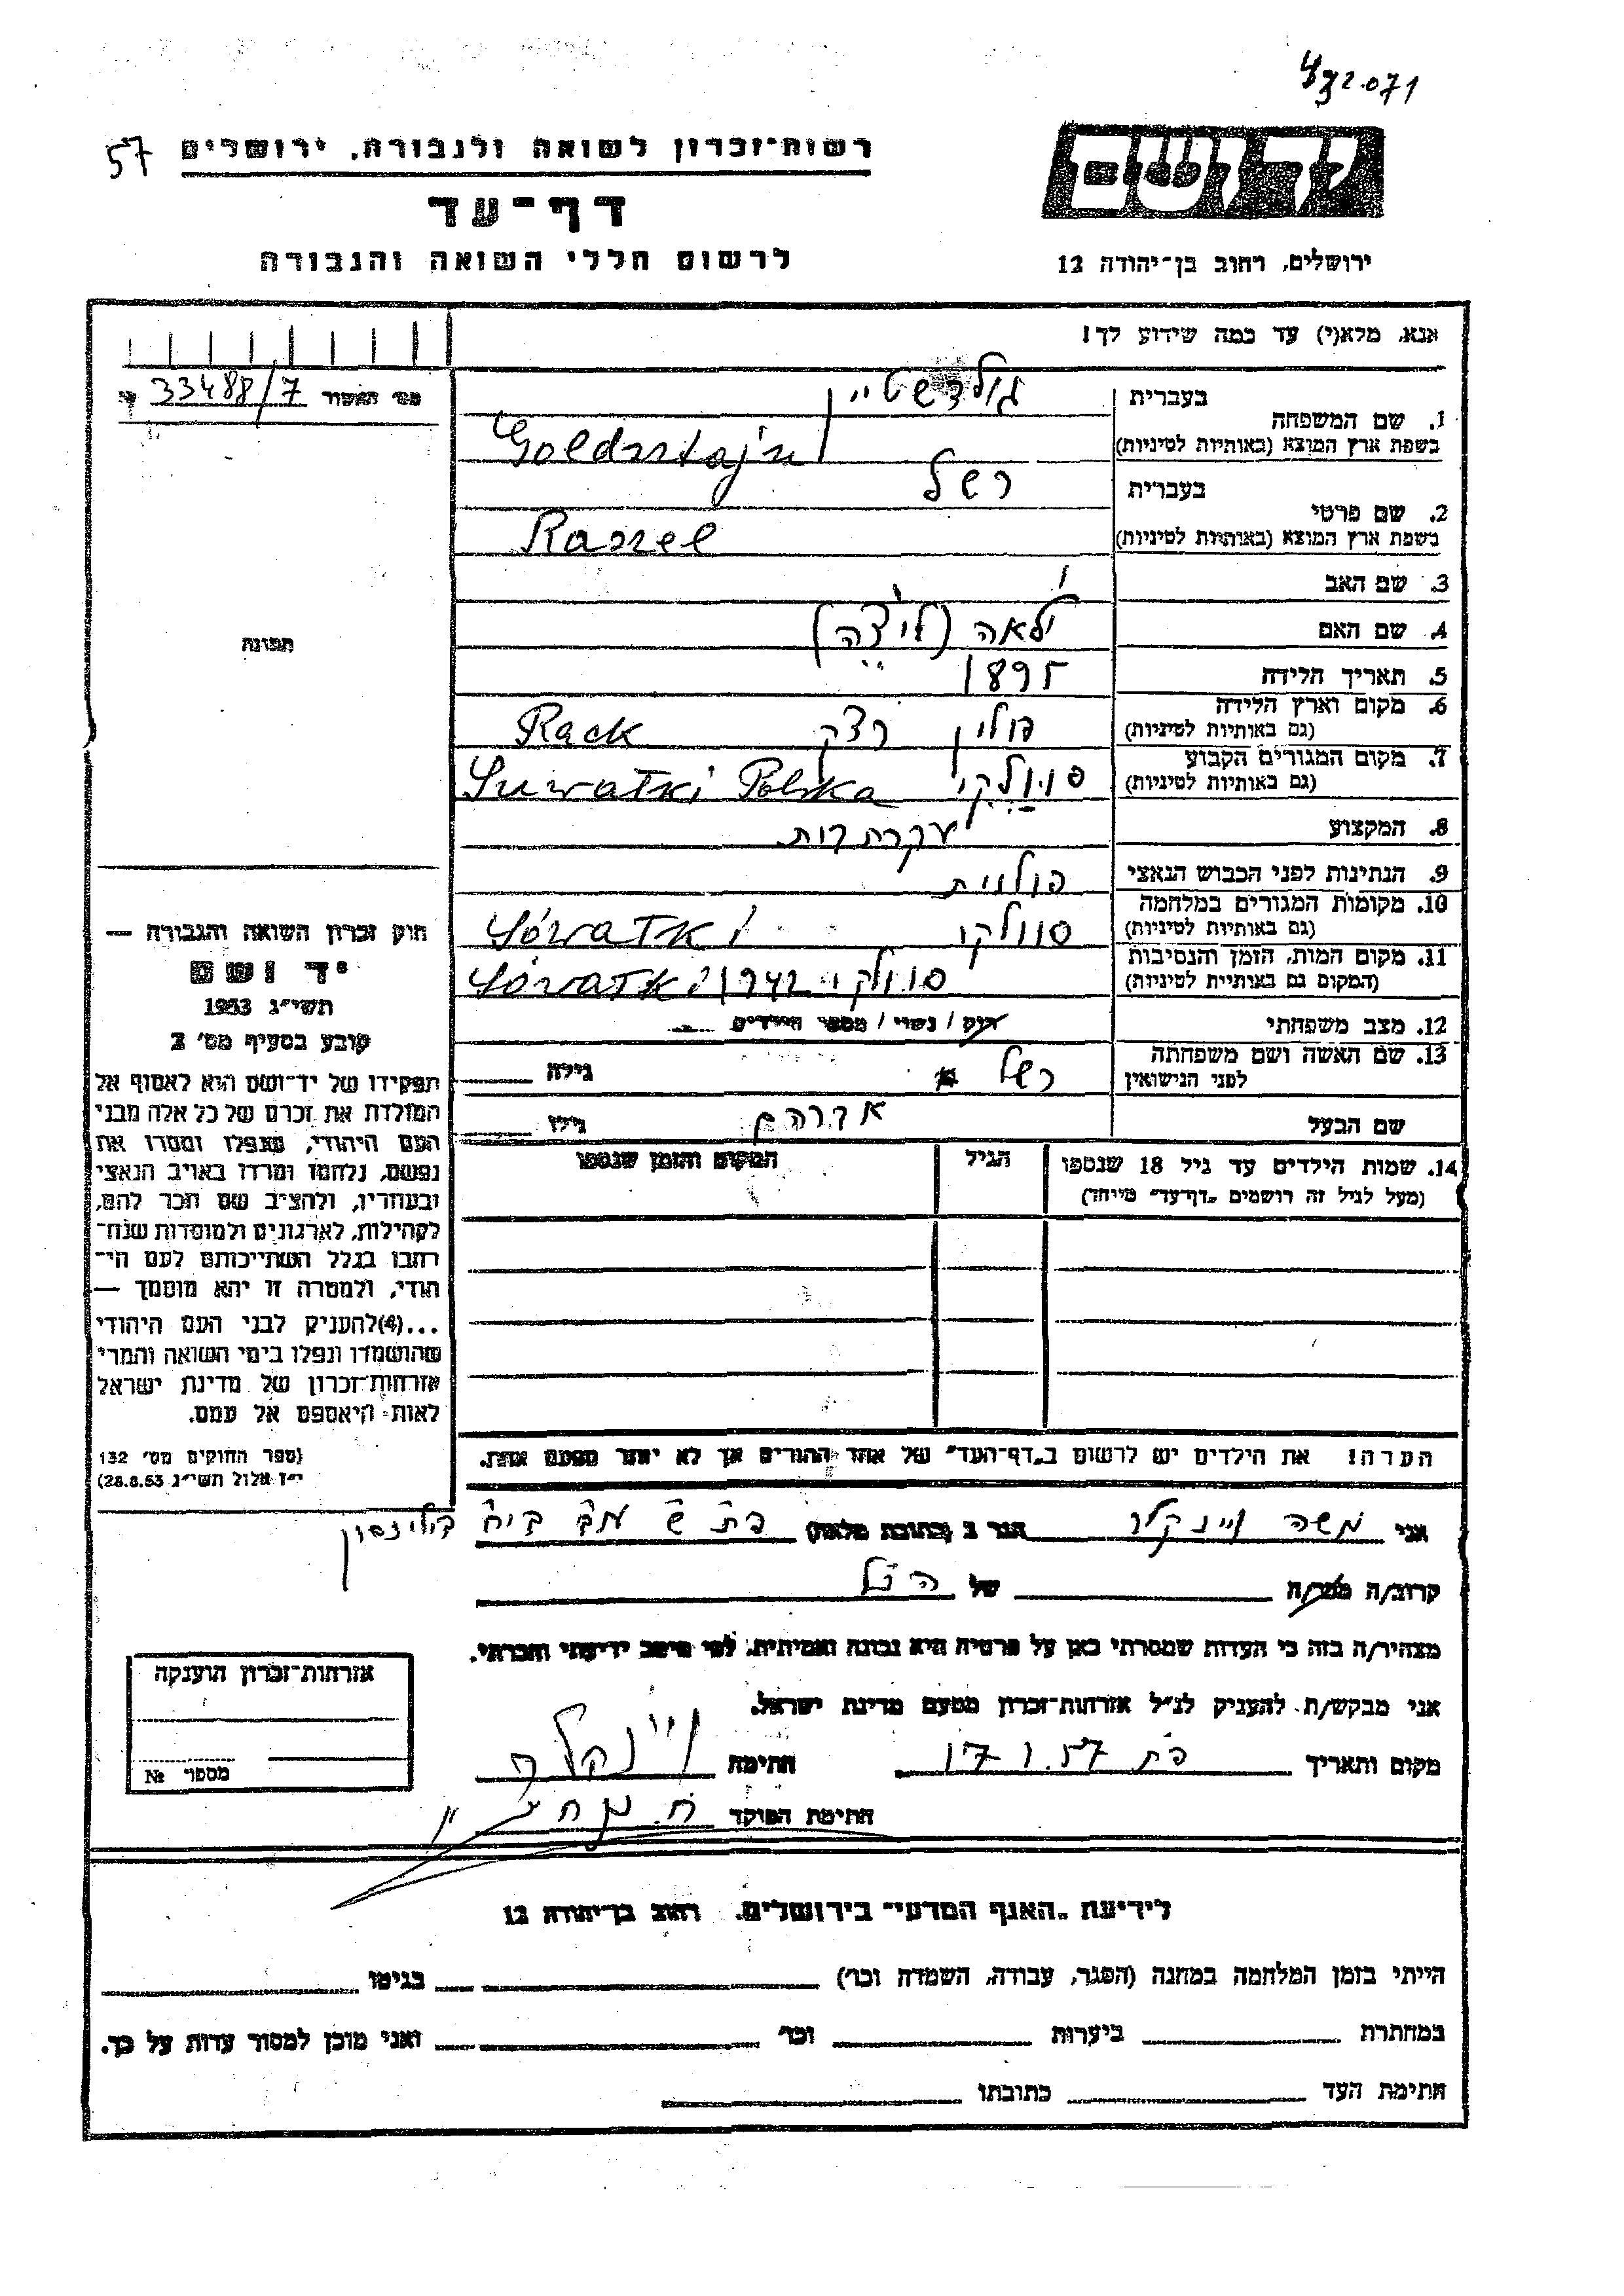 57
רשות־זכרון לשואה ולגבורה, ירושלים
דף־עד
לרשום חללי השואה והגבורה
יד ושם
ירושלים, רחוב בן־יהודה 12
אנא, מלא(י) עד כמה שידוע לך!
33488/7
1. שם המשפחה
בעברית גולדשטיין
בשפת ארץ המוצא (באותיות לטיניות) Goldsztajn
2. שם פרטי
בעברית רשל
בשפת ארץ המוצא (באותיות לטיניות) Raszel
3. שם האב
4. שם האם
5. תאריך הלידה 1895
6. מקום וארץ הלידה
(גם באותיות לטיניות) פולין רצק Rack
7. מקום המגורים הקבוע
(גם באותיות לטיניות) סוולקי Suwatki Polska
8. המקצוע עקרת בית
9. הנתינות לפני הכבוש הנאצי פולנית
10. מקומות המגורים במלחמה
(גם באותיות לטיניות) סוולקי Sówatki
11. מקום המות, הזמן והנסיבות
(המקום גם באותיות לטיניות) סוולקי Sówatki
12. מצב משפחתי רוק / נשוי / מספר הילדים
13. שם האשה ושם משפחתה
לפני הנישואין רשל גילה
שם הבעל אברהם גילו
14. שמות הילדים עד גיל 18 שנספו הגיל המקום והזמן שנספו
(מעל לגיל זה רושמים „דף־עד״ מייחד)
הערה! את הילדים יש לרשום ב„דף־העד״ של אחד ההורים אך לא יותר מפעם אחת.
תמונה
חוק זכרון השואה והגבורה —
יד ושם
תשי״ג 1953
קובע בסעיף מס׳ 2
תפקידו של יד־ושם הוא לאסוף אל
המולדת את זכרם של כל אלה מבני
העם היהודי, שנפלו ומסרו את
נפשם, נלחמו ומרדו באויב הנאצי
ובעוזריו, ולהציב שם וזכר להם,
לקהילות, לארגונים ולמוסדות שנח־
רבו בגלל השתייכותם לעם הי־
הודי, ולמטרה זו יהא מוסמך —
...(4)להעניק לבני העם היהודי
שהושמדו ונפלו בימי השואה והמרי
אזרחות־זכרון של מדינת ישראל
לאות היאספם אל עמם.
(ספר החוקים מס׳ 132
י״ז אלול תשי״ג 28.8.53)
אני משה וינקלר הגר ב (כתובת מלאה)
קרוב/ה מכר/ה של הנ״ל
מצהיר/ה בזה כי העדות שמסרתי כאן על פרטיה היא נכונה ואמיתית, לפי מיטב ידיעתי והכרתי.
אני מבקש/ת להעניק לנ״ל אזרחות־זכרון מטעם מדינת ישראל.
מקום ותאריך פת 17.1.57 חתימה וינקלר
חתימת הפוקד
אזרחות־זכרון הוענקה
מספר №
לידיעת „האגף המדעי״ בירושלים, רחוב בן־יהודה 12
הייתי בזמן המלחמה במחנה (הסגר, עבודה, השמדה וכו׳) בגיטו
במחתרת ביערות וכו׳ ואני מוכן למסור עדות על כך.
חתימת העד כתובתו